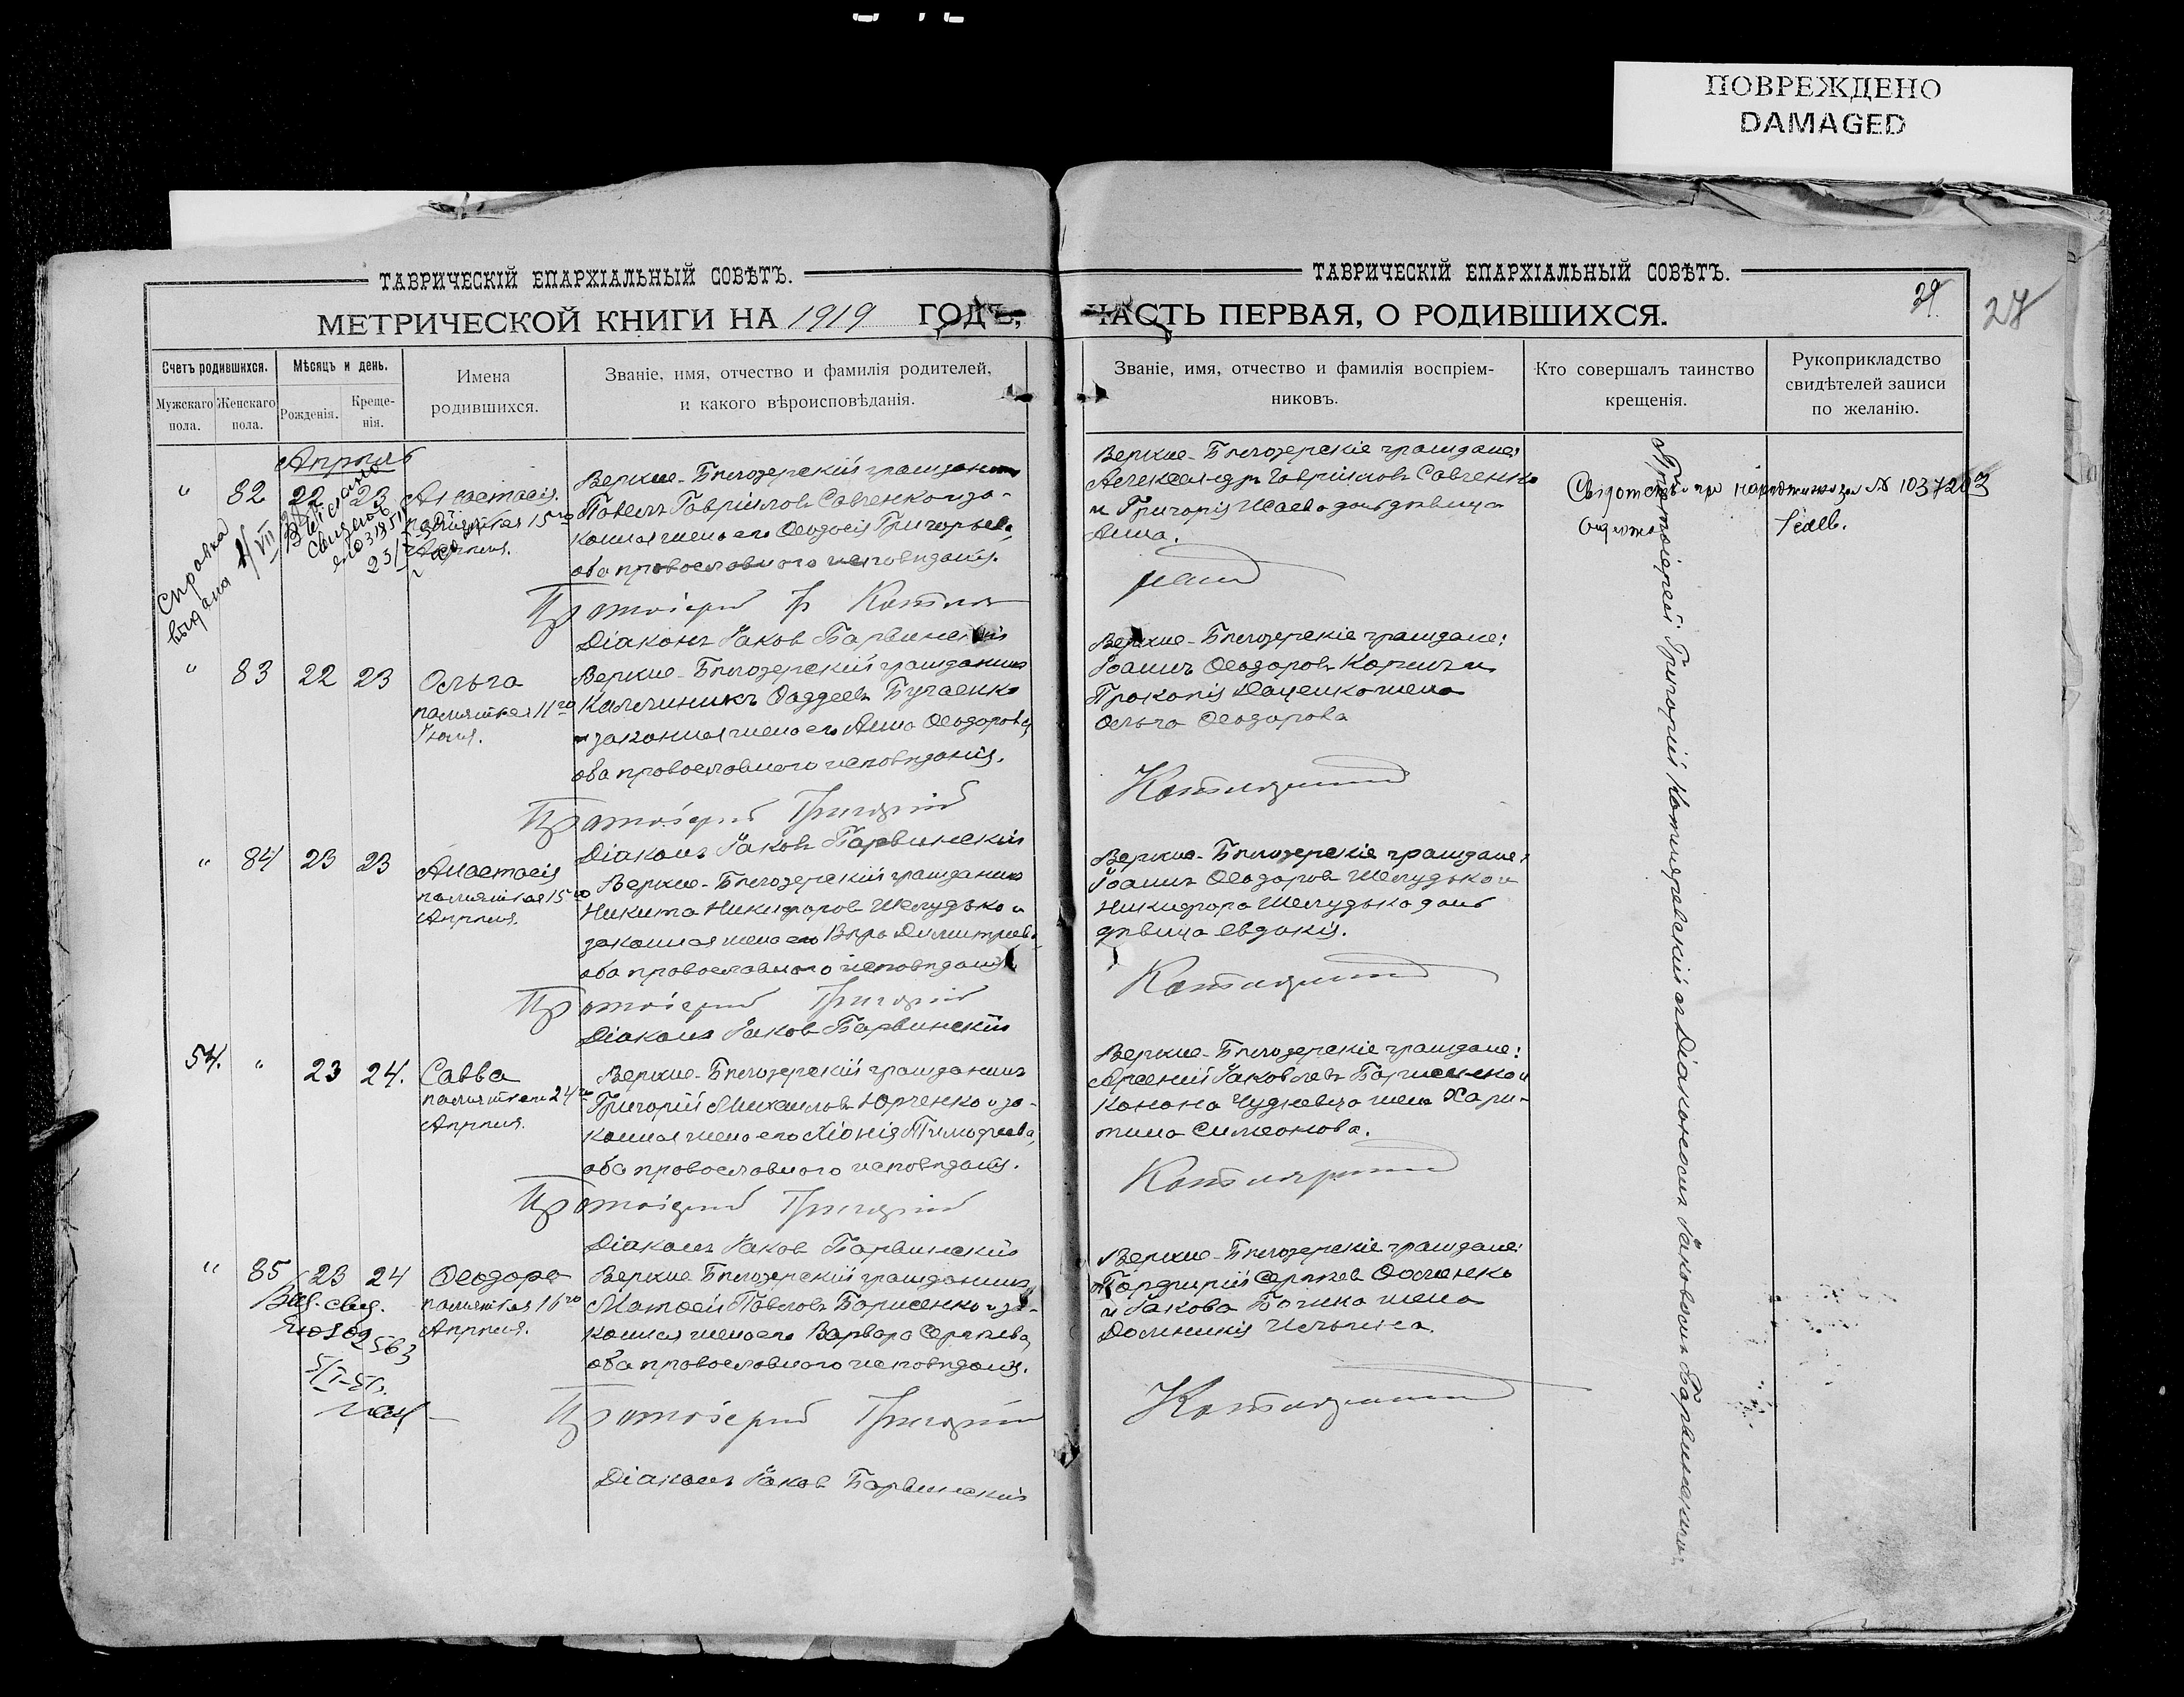 ПОВРЕЖДЕНО
DAMAGED
ТАВРИЧЕСКІЙ ЕПАРХІАЛЬНЫЙ СОВѢТЪ.
МЕТРИЧЕСКОЙ КНИГИ НА 1919 ГОДЪ,
Счетъ родившихся.
Мужскаго пола.
Женскаго пола.
Мѣсяцъ и день.
Рожденія.
Креще-
нія.
Имена
родившихся.
Званіе, имя, отчество и фамилія родителей,
и какого вѣроисповѣданія.
Апрѣль
" 82 22 23
Справка
выдана
Анастасія
памятная 15го
Апрѣля.
Верхне-Бѣлозерскій гражданинъ
Павелъ Гавріиловъ Савченко и за-
конная жена его Ѳеодосія Григорьева,
оба православнаго исповѣданія.
Протоіерей
Діаконъ Іаковъ Барвинскій
" 83 22 23
Ольга
памятная 11го
Іюля.
Верхне-Бѣлозерскій гражданинъ
Каллиникъ Ѳаддеевъ Бугаенко
и законная жена его Анна Ѳеодорова,
оба православнаго исповѣданія.
Протоіерей Григорій
Діаконъ Іаковъ Барвинскій
" 84 23 23
Анастасія
памятная 15го
Апрѣля.
Верхне-Бѣлозерскій гражданинъ
Никита Никифоровъ Шелудько и
законная жена его Вѣра Димитріева
оба православнаго исповѣданія.
Протоіерей Григорій
Діаконъ Іаковъ Барвинскій
54. " 23 24.
Савва
памятный 24го
Апрѣля.
Верхне-Бѣлозерскій гражданинъ
Григорій Михаиловъ Юрченко и за-
конная жена его Хіонія Тимофеева,
оба православнаго исповѣданія.
Протоіерей Григорій
Діаконъ Іаковъ Барвинскій
" 85 23 24
Выд. свид.
Ѳеодора
памятная 16го
Апрѣля.
Верхне-Бѣлозерскій гражданинъ
Матѳей Павловъ Борисенко и за-
конная жена его Варвара Сергіева,
оба православнаго исповѣданія.
Протоіерей Григорій
Діаконъ Іаковъ Барвинскій
ТАВРИЧЕСКІЙ ЕПАРХІАЛЬНЫЙ СОВѢТЪ.
ЧАСТЬ ПЕРВАЯ, О РОДИВШИХСЯ.
29.
27
Званіе, имя, отчество и фамилія воспріем-
никовъ.
Кто совершалъ таинство
крещенія.
Рукоприкладство
свидѣтелей записи
по желанію.
Верхне-Бѣлозерскіе граждане:
Александръ Гавріиловъ Савченко
и Григорія Исаева дочь дѣвица
Анна.
№ 1037263
Верхне-Бѣлозерскіе граждане:
Іоаннъ Ѳеодоровъ Коржъ и
Прокопія Даценко жена
Ольга Ѳеодорова
Котляревскій
Верхне-Бѣлозерскіе граждане:
Іоаннъ Ѳеодоровъ Шелудько и
Никифора Шелудько дочь
дѣвица Евдокія.
Котляревскій
Верхне-Бѣлозерскіе граждане:
Арсеній Іаковлевъ Борисенко и
Конона Чудневца жена Хари-
тина Симеонова.
Котляревскій
Верхне-Бѣлозерскіе граждане:
Порфирій Сергіевъ
и Іакова жена
Домникія
Котляревскій
Протоіерей Григорій Котляревскій съ Діакономъ Іаковомъ Барвинскимъ.